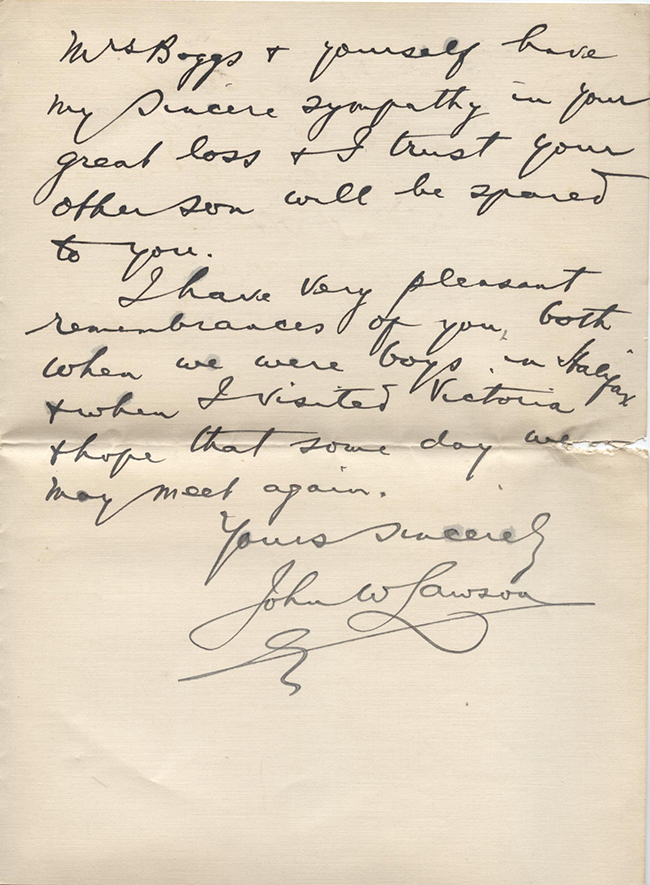 Mrs Boggs & yourself have
my sincere sympathy in your
great loss & I trust your
other son will be spared
to you.
I have very pleasant
remembrances of you, both
when we were boys in Halifax
& when I visited Victoria
& hope that some day we
may meet again.
Yours sincerely
John W Lawson